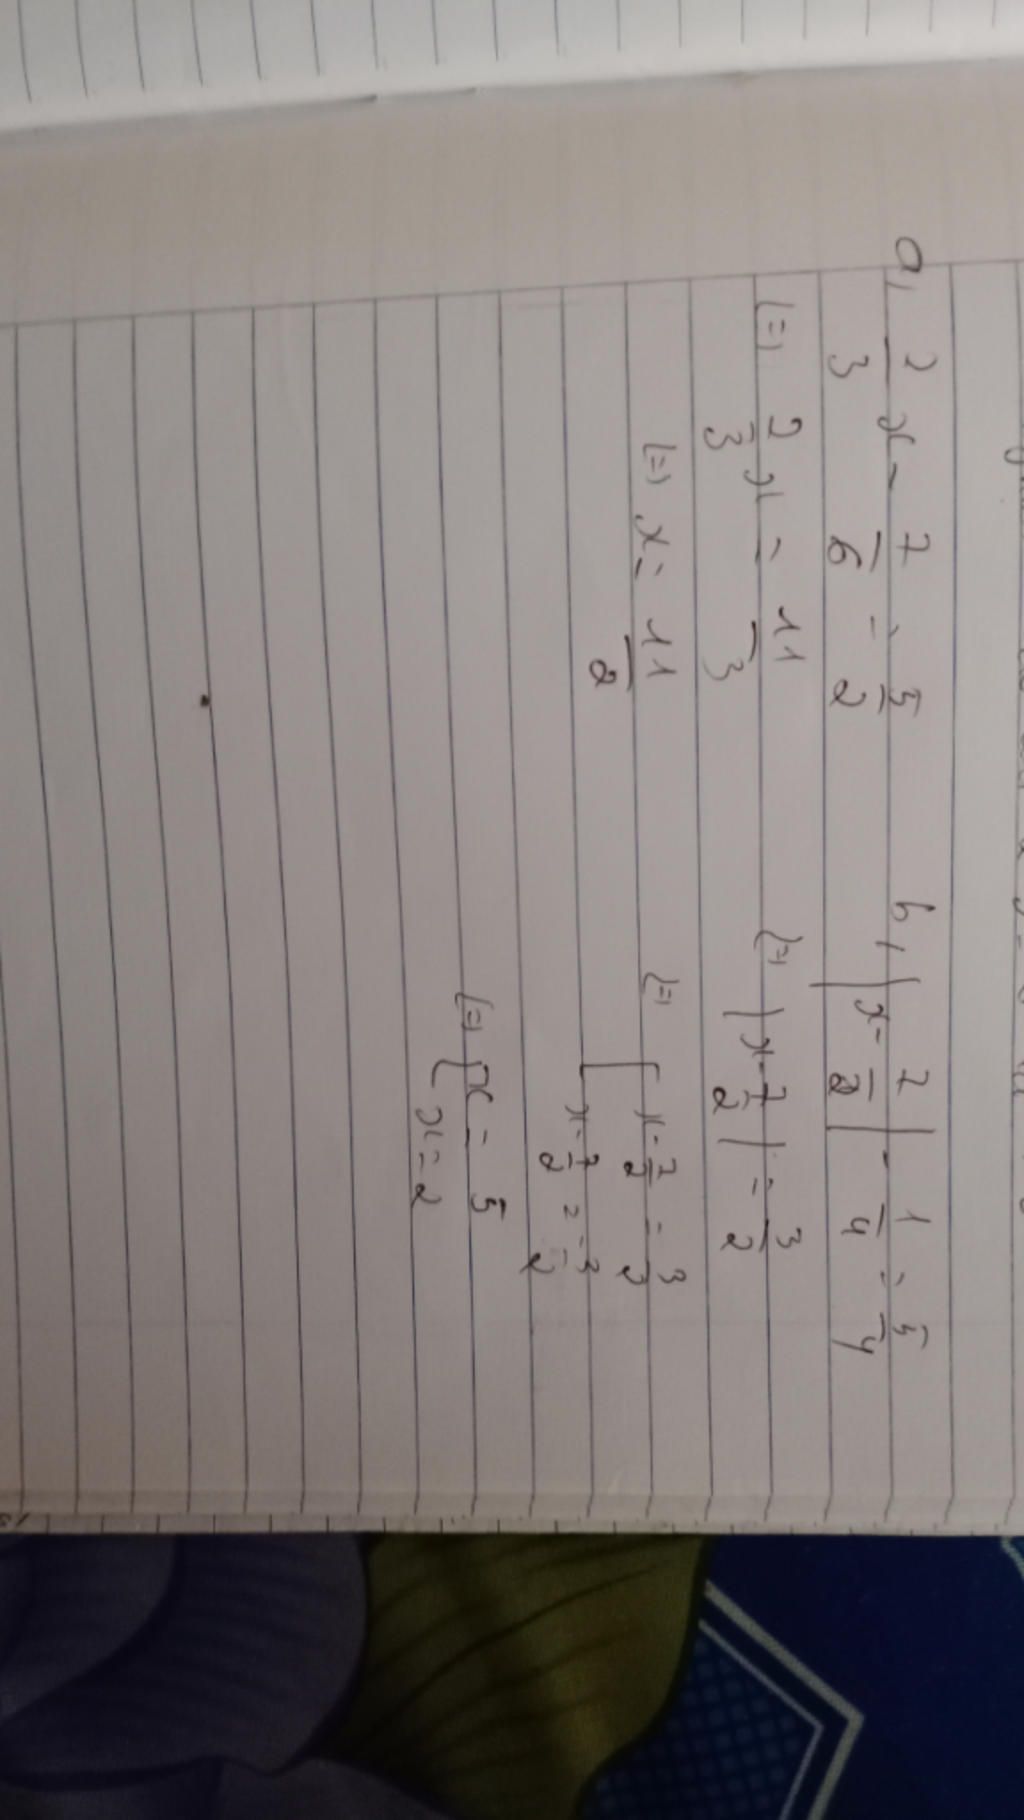 a, 2/3 x - 7/6 = 5/2
(=) 2/3 x = 11/3
(=) x = 11/2
b, |x - 7/2| - 1/4 = 5/4
(=) |x - 7/2| = 3/2
(=) [ x - 7/2 = 3/2
x - 7/2 = -3/2
(=) [ x = 5
x = 2